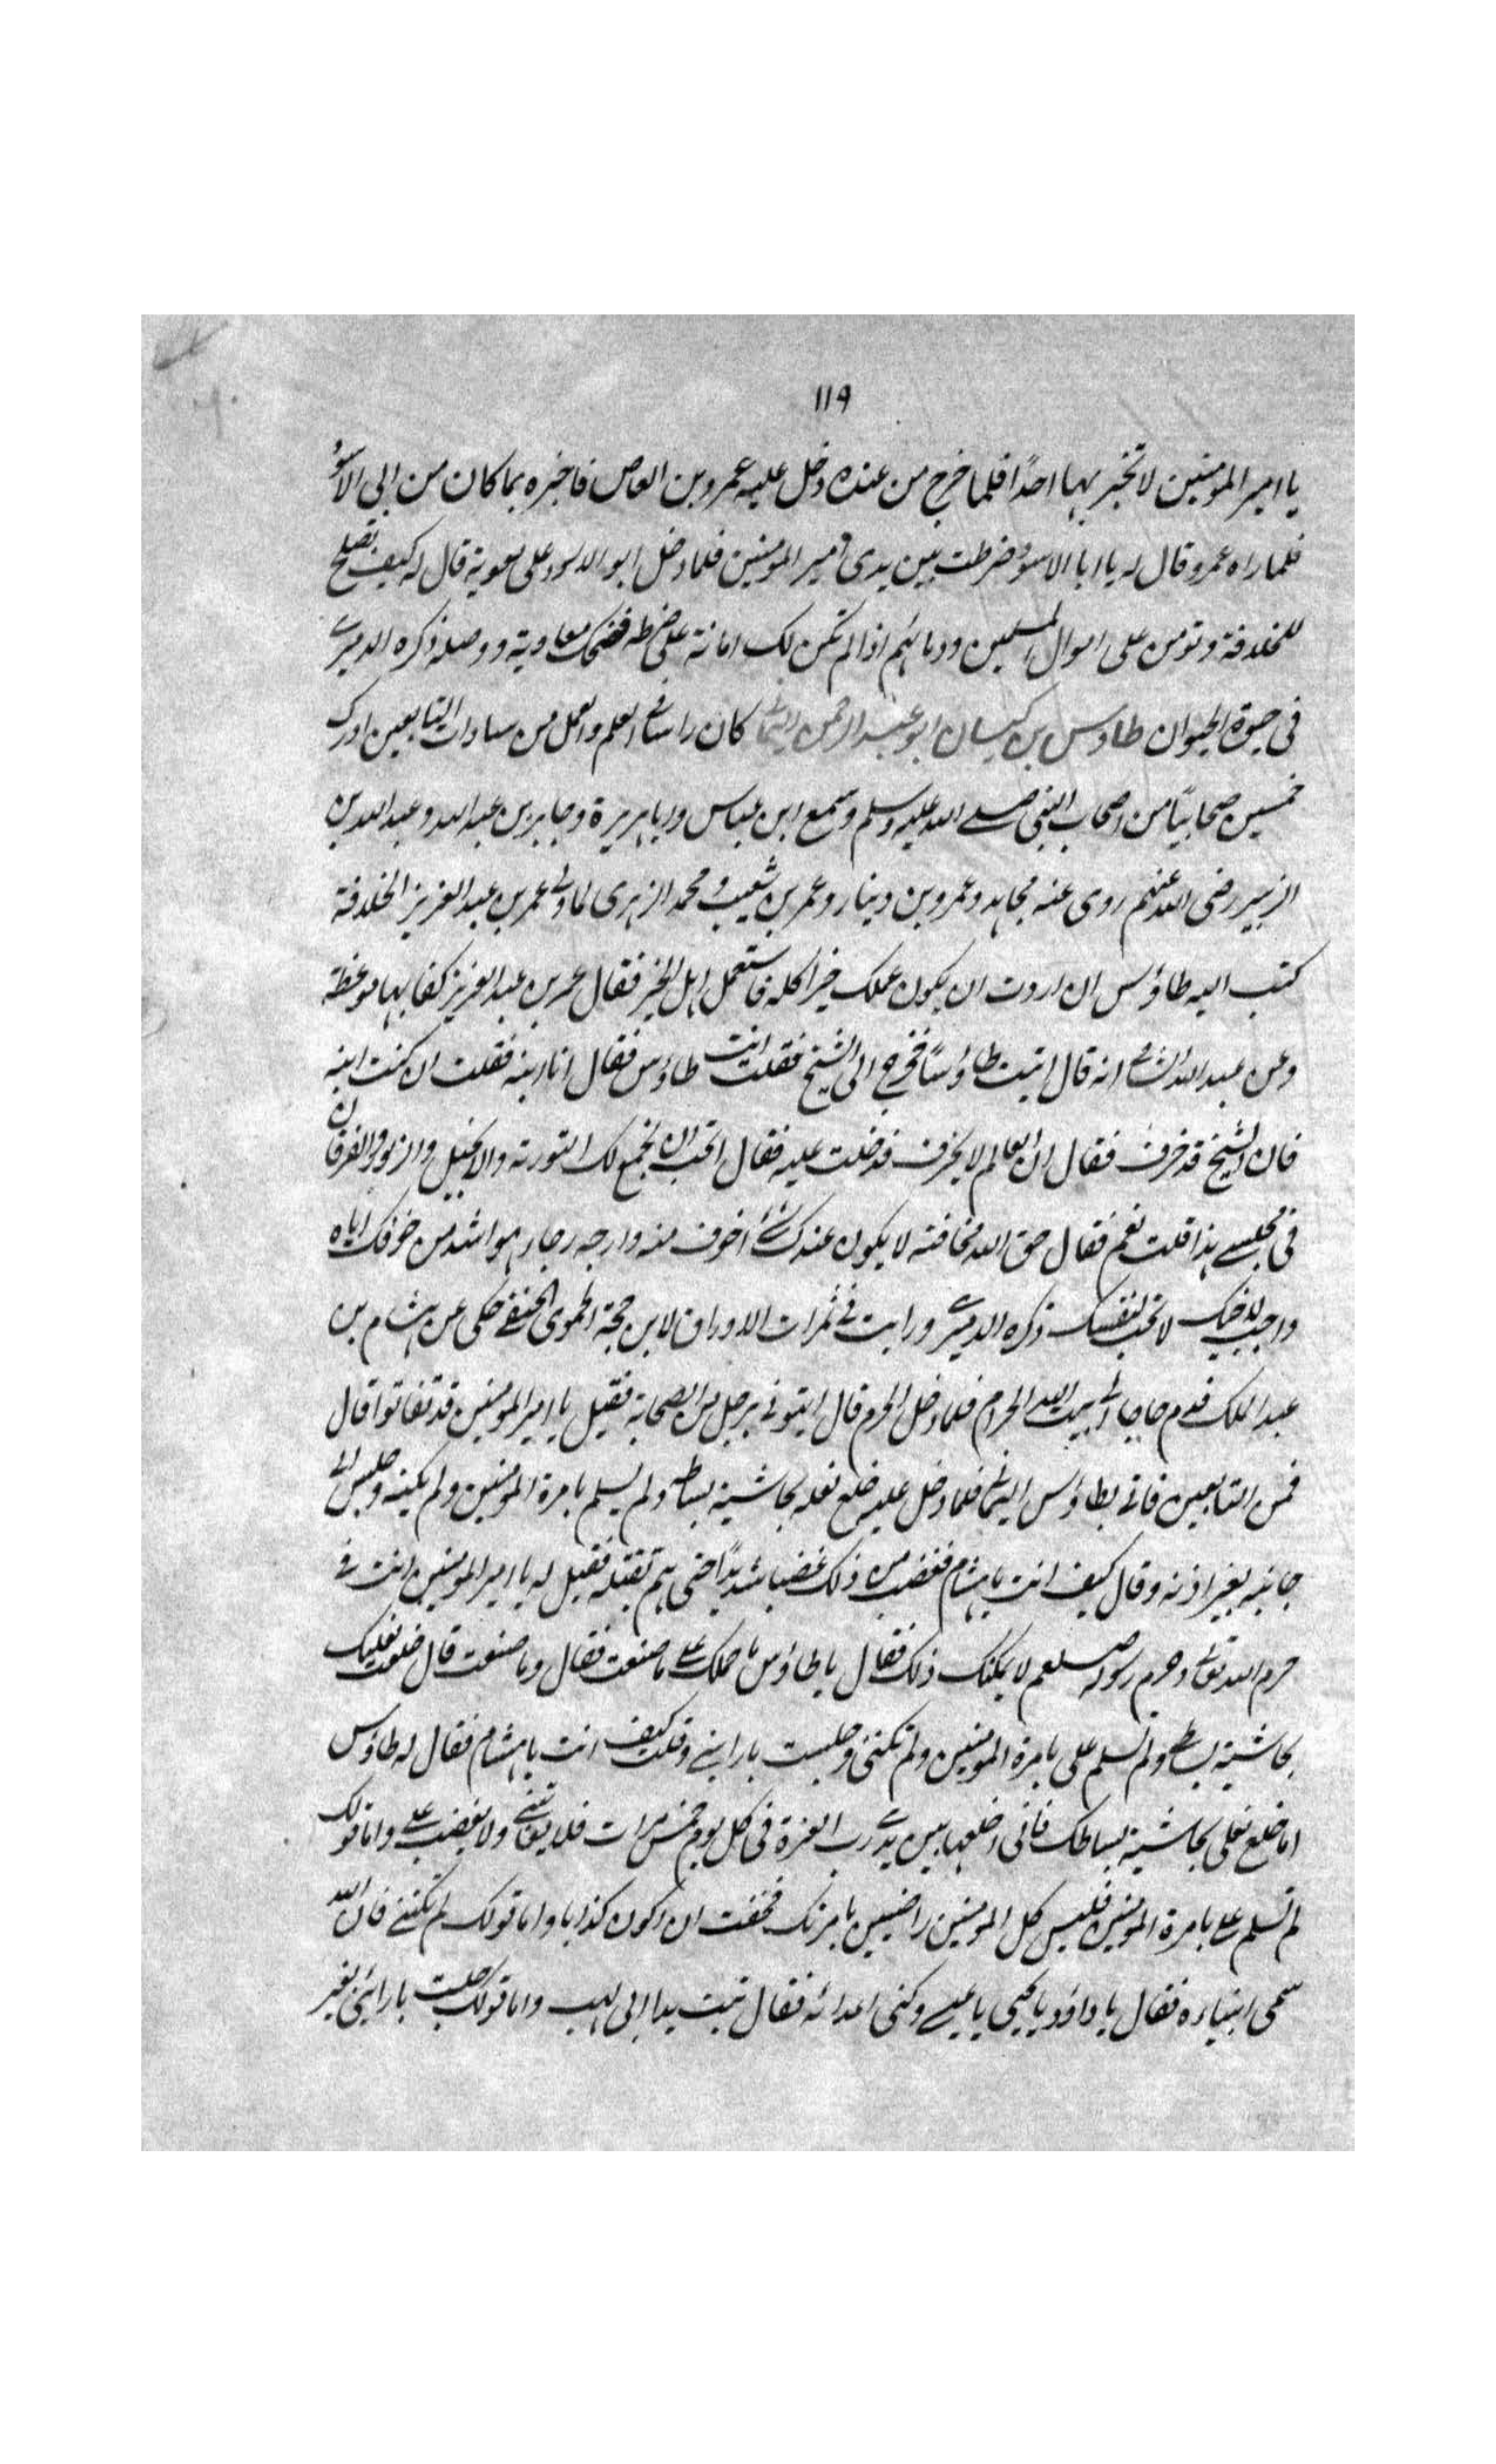 ١١٩
يا امير المومنين لا تخبر بها احدًا فلما خرج من عنده دخل عليه عمرو بن العاص فاخبره بما كان من ابى الاسود
فلما راه عمرو قال له يا ابا الاسود ضرطت بين يدى امير المومنين فلما دخل ابو الاسود على معوية قال له كيف تصلح
للخلافة وتومن على اموال المسلمين ودمائهم اذا لم تكن لك امانة على ضرطه فضحك معاوية ووصله ذكره الدميرے
فى حيوة الحيوان طاوس بن كيسان ابو عبد الرحمن اليمانے كان راسا فے العلم والعمل من سادات التابعين ادرك
خمسين صحابيًا من اصحاب النبى صلے الله عليه وسلم وسمع ابن عباس وابا هريرة وجابر بن عبد الله وعبد الله بن
الزبير رضى الله عنهم روى عنه مجاهد وعمرو بن دينار وعمر بن شعيب و محمد الزهرى لما ولے عمر بن عبد العزيز الخلافة
كتب اليه طاؤس ان اردت ان يكون عملك خيرا كله فاستعمل اهل الخير فقال عمر بن عبد العزيز كفا بها موعظة
وعن عبد الله الشامے انه قال اتيت طاؤسًا فخرج الى الشيخ فقلت انت طاؤس فقال انا ابنه فقلت ان كنت ابنه
فان الشيخ قد خرف فقال ان العالم لا يخرف فدخلت عليه فقال اتحب ان اجمع لك التورته والانجيل والزبور والفرقان
فى مجلسے هذا قلت نعم فقال خف الله مخافته لا يكون عندك شئ اخوف منه وارجه رجاء هو اشد من خوفك اياه
واحب لاخيك لا تحب لنفسك ذكره الدميرے ورايت فے ثمرات الاوراق لابن حجة الحموى الحنفے حكى عن هشام بن
عبد الملك قدم حاجا الے بيت الله الحرام فلما دخل الحرم قال ايتونے برجل من الصحابة فقيل يا امير المومنين قد تفانوا قال
فمن التابعين فاتے بطاؤس اليمانے فلما دخل عليه خلع نعله بحاشية بساطه ولم يسلم بامرة المومنين ولم يكنه وجلس الے
جانبه بغير اذنه وقال كيف انت يا هشام فغضب من ذلك غضبا شديدًا حتى هم بقتله فقيل له يا امير المومنين انت فے
حرم الله تعالے وحرم رسوله صلعم لا يمكنك ذلك فقال يا طاؤس ما حملك علے ما صنعت فقال وما صنعت قال خلعت نعليك
بحاشية بساطے ولم تسلم على بامرة المومنين ولم تكننى وجلست بازائے وقلت كيف انت يا هشام فقال له طاؤس
اما خلع نعلى بحاشية بساطك فانى اخلعها بين يدے رب العزة فى كل يوم خمس مرات فلا يعاتبنے ولا يغضب علے واما قولك
لم تسلم علے بامرة المومنين فليس كل المومنين راضيين بامرتك فخفت ان اكون كذابا واما قولك لم تكننے فان الله
سمى انبياءه فقال يا داؤد يا يحيى يا عيسے وكنى اعدائه فقال تبت يدا ابى لهب واما قولك جلست بازائى بغير